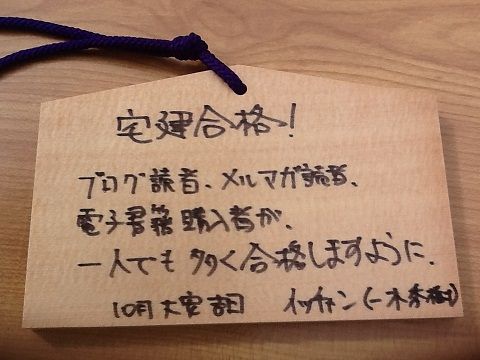 宅建合格!
ブログ読者、メルマガ読者、
電子書籍購入者が、
一人でも多く合格しますように、
10月大安吉日 イッチャン(一木秀樹)